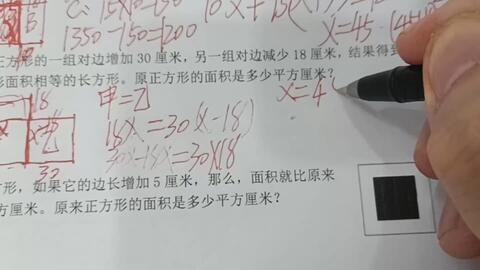 C: 15×10=150
1350-150=1200
X=45
正方形的一组对边增加 30 厘米，另一组对边减少 18 厘米，结果得到
形面积相等的长方形。原正方形的面积是多少平方厘米？
18
甲=乙
X=4
18X=30(X-18)
30X-18X=30×18
30
方形，如果它的边长增加 5 厘米，那么，面积就比原来
方厘米。原来正方形的面积是多少平方厘米？